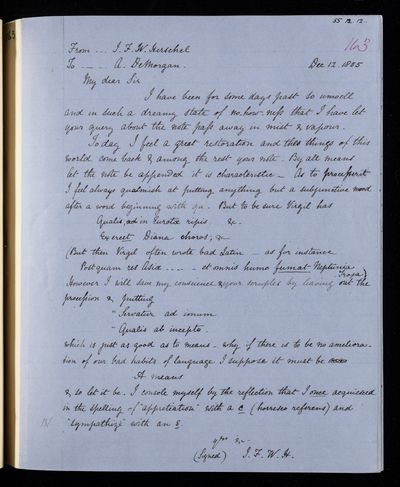 55.12.12.
163
From ... J. F. W. Herschel
To ... A. DeMorgan.
Dec 12. 1855
My dear Sir
I have been for some days past so unwell
and in such a dreamy state of no-how-ness that I have let
your query about the note pass away in mist & vapour.
Today I feel a great restoration and the things of this
world come back & among the rest your note. By all means
let the note be appended it is characteristic — As to
I feel always qualmish at putting anything but a subjunctive mood
after a word beginning with qu. But to be sure Virgil has
Qualis, ad in Eurotæ ripis &c.
Exercet Diana choros; &c
(But then Virgil often wrote bad Latin — as for instance
Postquam res Asiæ .... - et omnis humo fumat Neptunia
Troja)
However I will save my conscience & your scruples by leaving out the
& putting
"Servatur ad imum
"Qualis ab incepto.
which is just as good as to means. Why if there is to be no ameliora-
tion of our bad habits of language I suppose it must be
A means
& so let it be. I console myself by the reflection that I once acquiesced
in the spelling of "appretiation" with a c (horresco referens) and
"sympathize" with an s.
yrs &c-
(Signed) J. F. W. H.